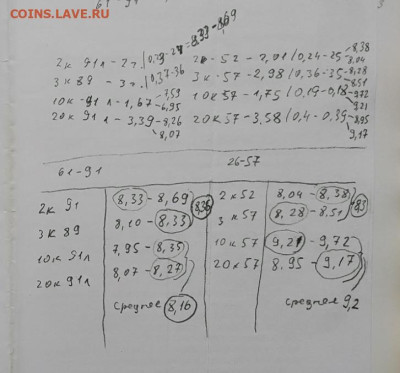 COINS.LAVE.RU
2к 91л - 2г / 0,23-24 = 8,33 - 8,69
3к 89 - 3г / 0,37-36
10к 91л - 1,67
7,95
20к 91л - 3,39 - 8,26
8,07
2к 52 - 2,01 / 0,24-25 - 8,38
8,04
3к 57 - 2,98 / 0,36-35 - 8,28
8,51
10к 57 - 1,75 / 0,19-0,18 - 9,72
9,21
20к 57 - 3,58 / 0,4-0,39 - 8,95
9,17
61-91
26-57
2к 91
8,33 - 8,69
2к 52
8,04 - 8,38
3к 89
8,10 - 8,33
3к 57
8,28 - 8,51
10к 91л
7,95 - 8,35
10к 57
9,21 - 9,72
20к 91л
8,07 - 8,27
20к 57
8,95 - 9,17
среднее 8,16
среднее 9,2